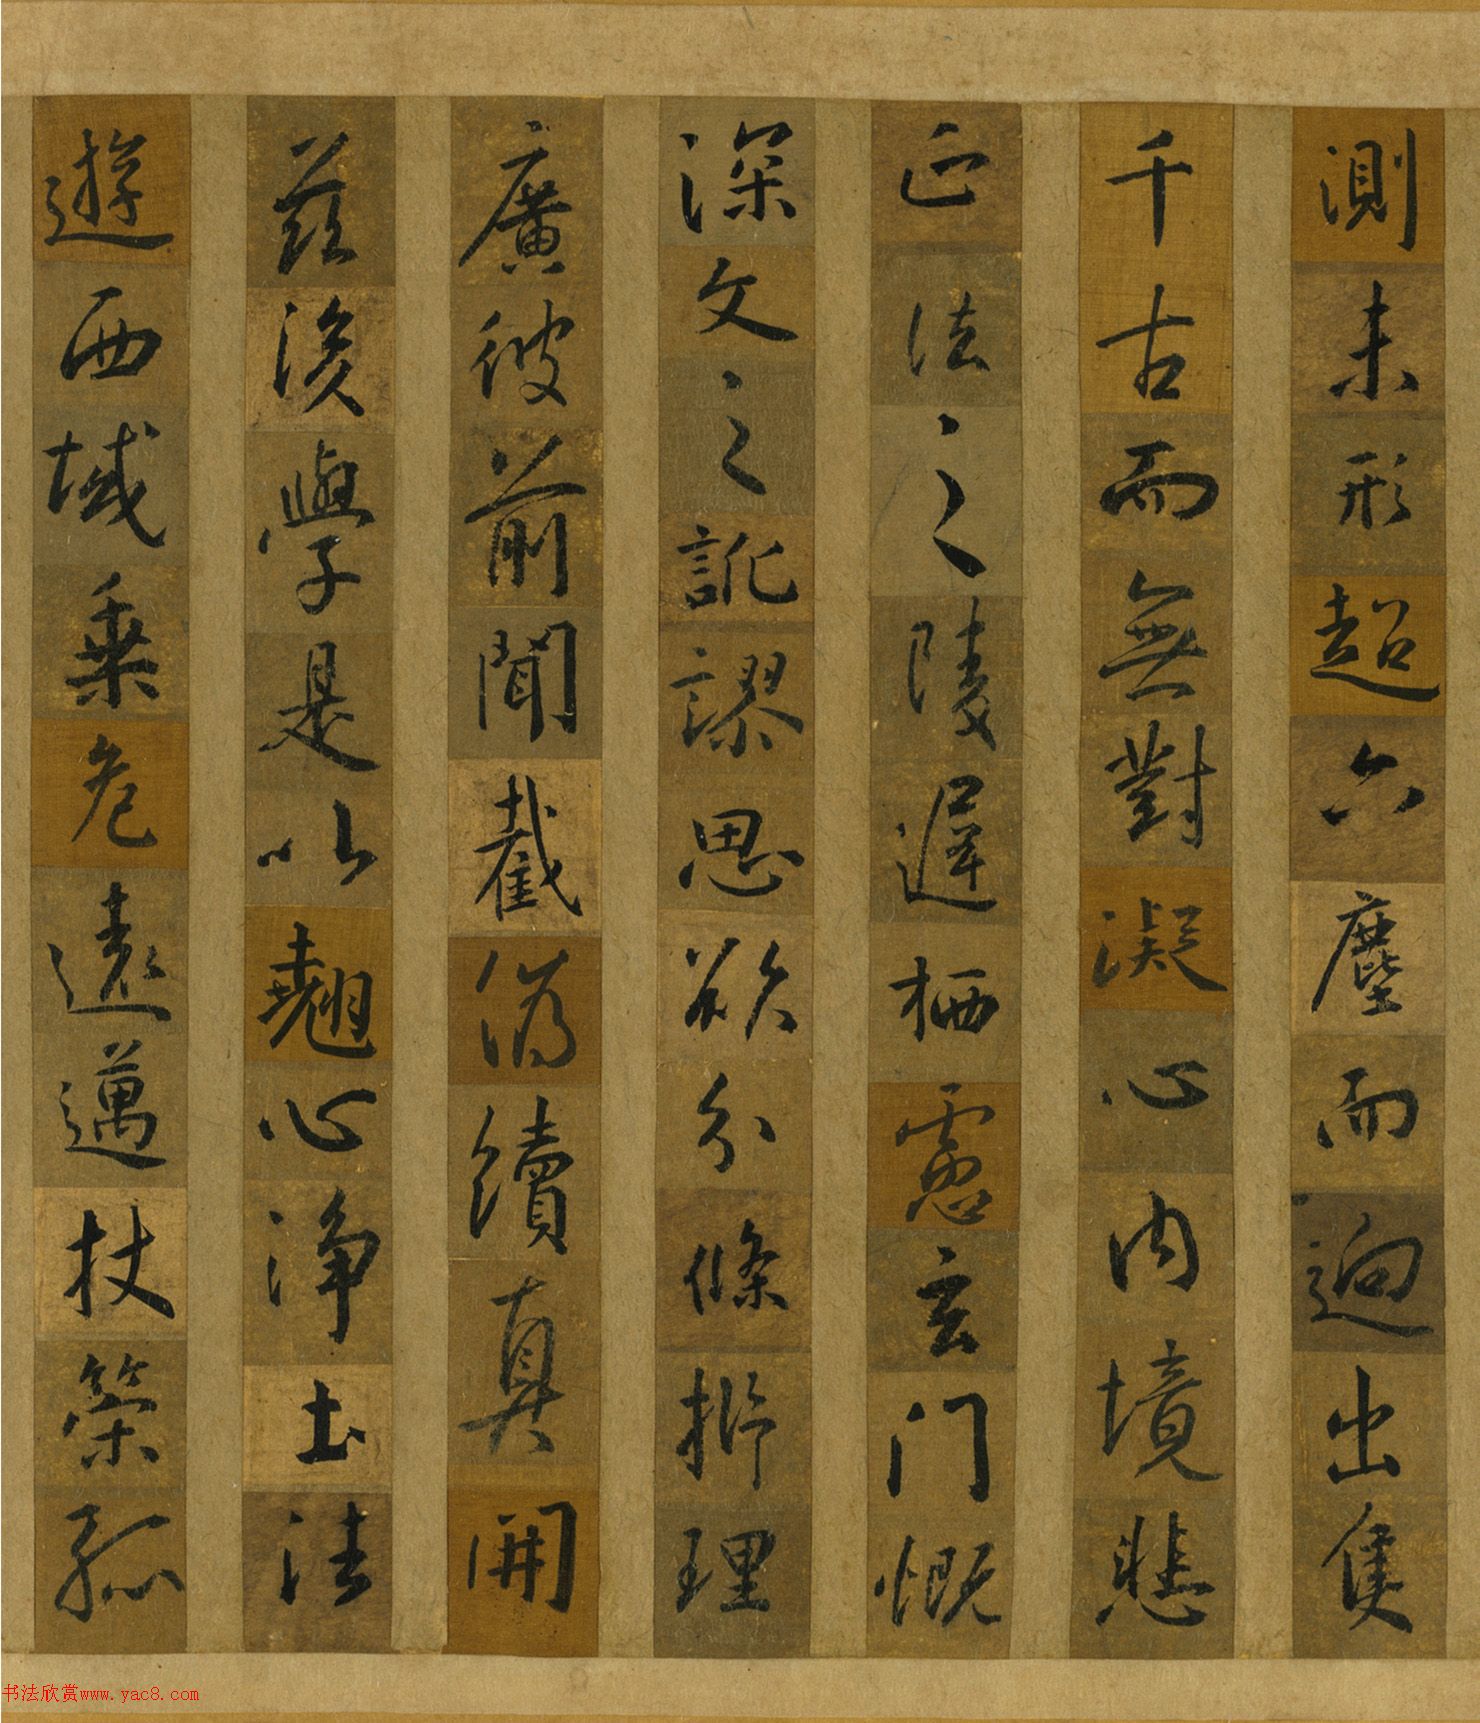 測未形超六塵而迥出隻
千古而無對凝心內境悲
正法之陵遲栖慮玄門慨
深文之訛謬思欲分條析理
廣彼前聞截偽續真開
茲後學是以翹心淨土法
遊西域乗危遠邁杖策孤
书法欣赏www.yac8.com